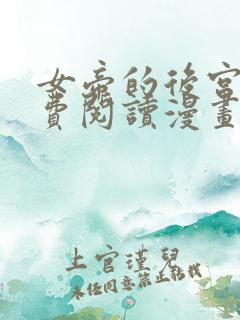 女帝的後宮
費閱讀漫畫
上官瑾兒
未經同意禁止轉載